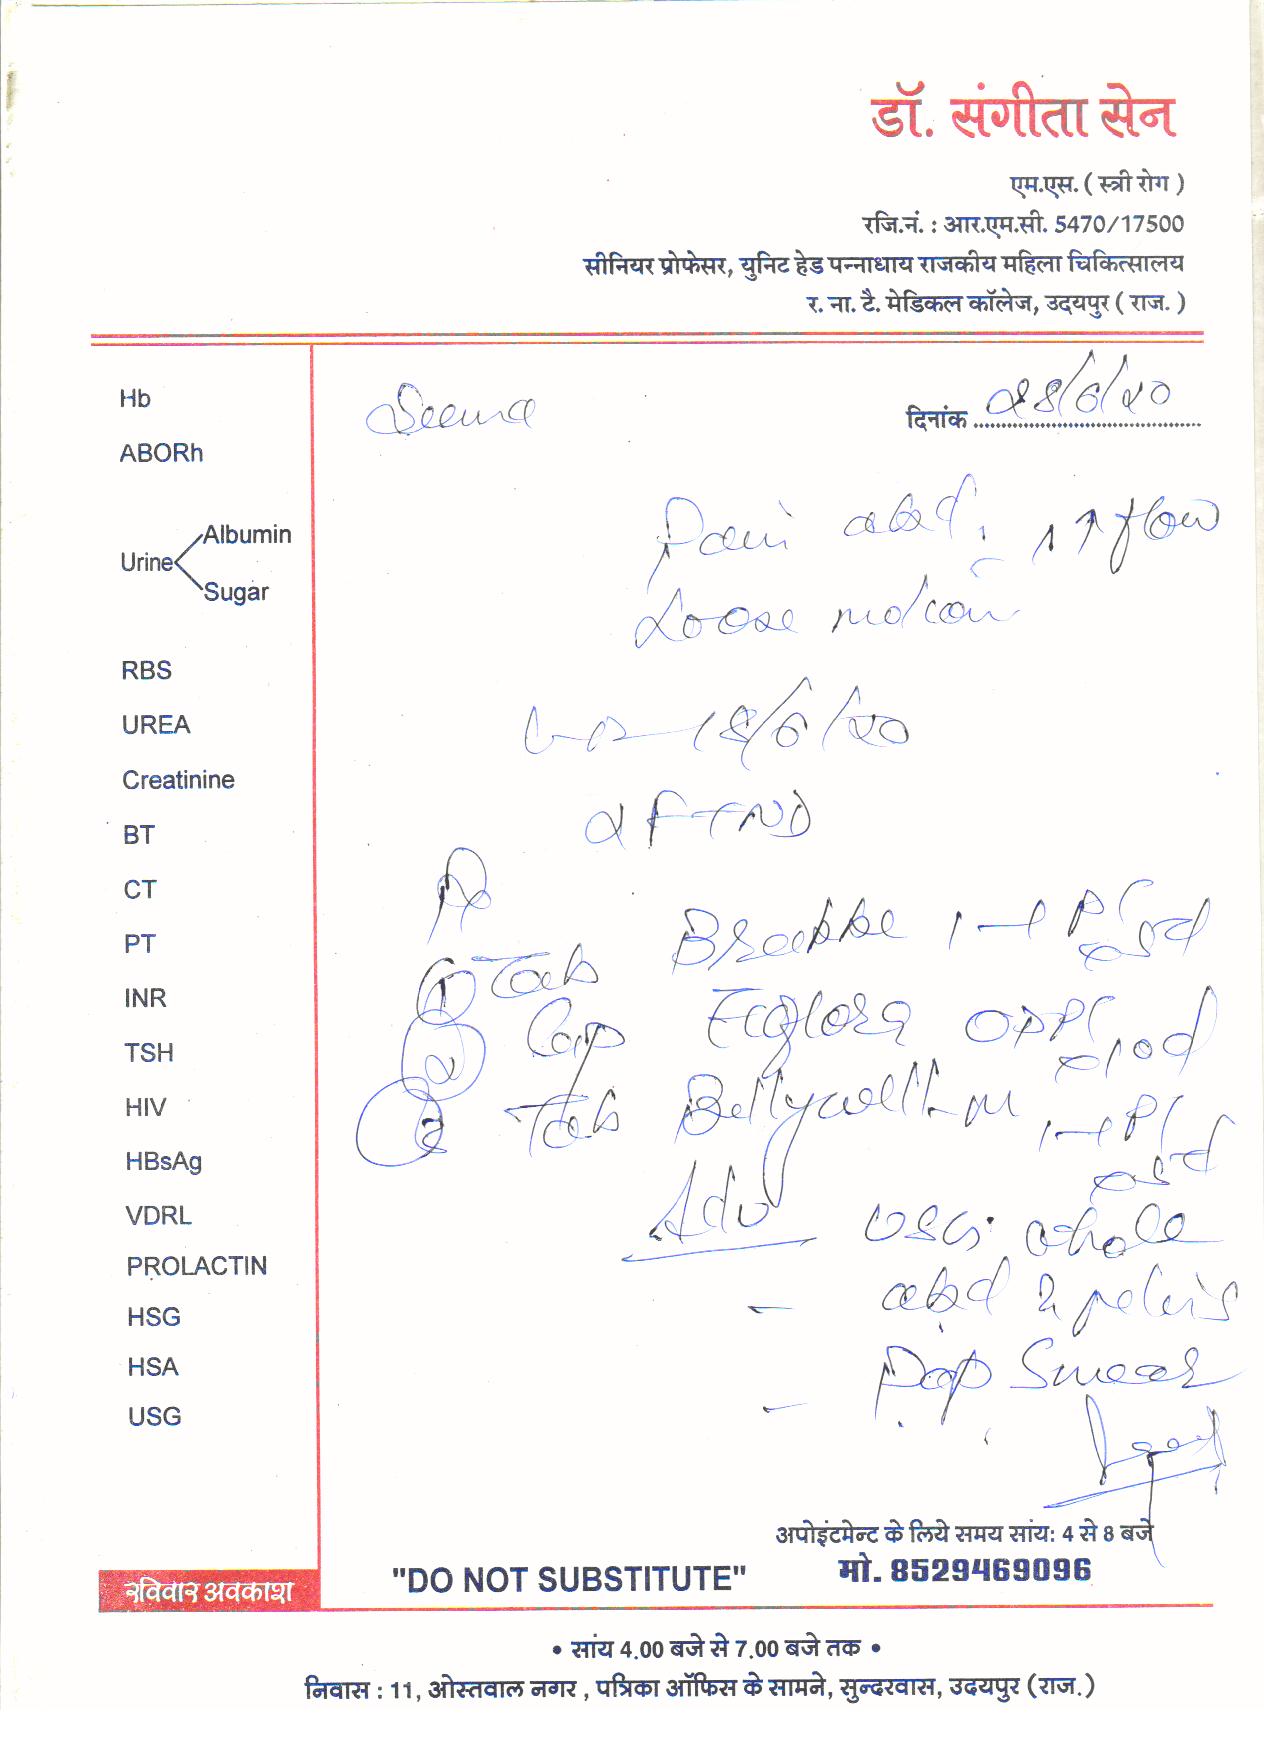 डॉ. संगीता सेन
एम.एस. ( स्त्री रोग )
रजि.नं. : आर.एम.सी. 5470/17500
सीनियर प्रोफेसर, युनिट हेड पन्नाधाय राजकीय महिला चिकित्सालय
र. ना. टै. मेडिकल कॉलेज, उदयपुर ( राज. )
Seema
दिनांक 28/6/20
Hb
ABORh
Urine
Albumin
Sugar
RBS
UREA
Creatinine
BT
CT
PT
INR
TSH
HIV
HBsAg
VDRL
PROLACTIN
HSG
HSA
USG
Pain abd, ↑↑ flow
Loose motion
18/6/20
2 FTND
① Tab
② Cap
③ Tab
Adv USG whole
- abd & pelvis
- Pap Smear
अपोइंटमेन्ट के लिये समय सांय: 4 से 8 बजे
मो. 8529469096
"DO NOT SUBSTITUTE"
रविवार अवकाश
• सांय 4.00 बजे से 7.00 बजे तक •
निवास : 11, ओस्तवाल नगर , पत्रिका ऑफिस के सामने, सुन्दरवास, उदयपुर (राज.)